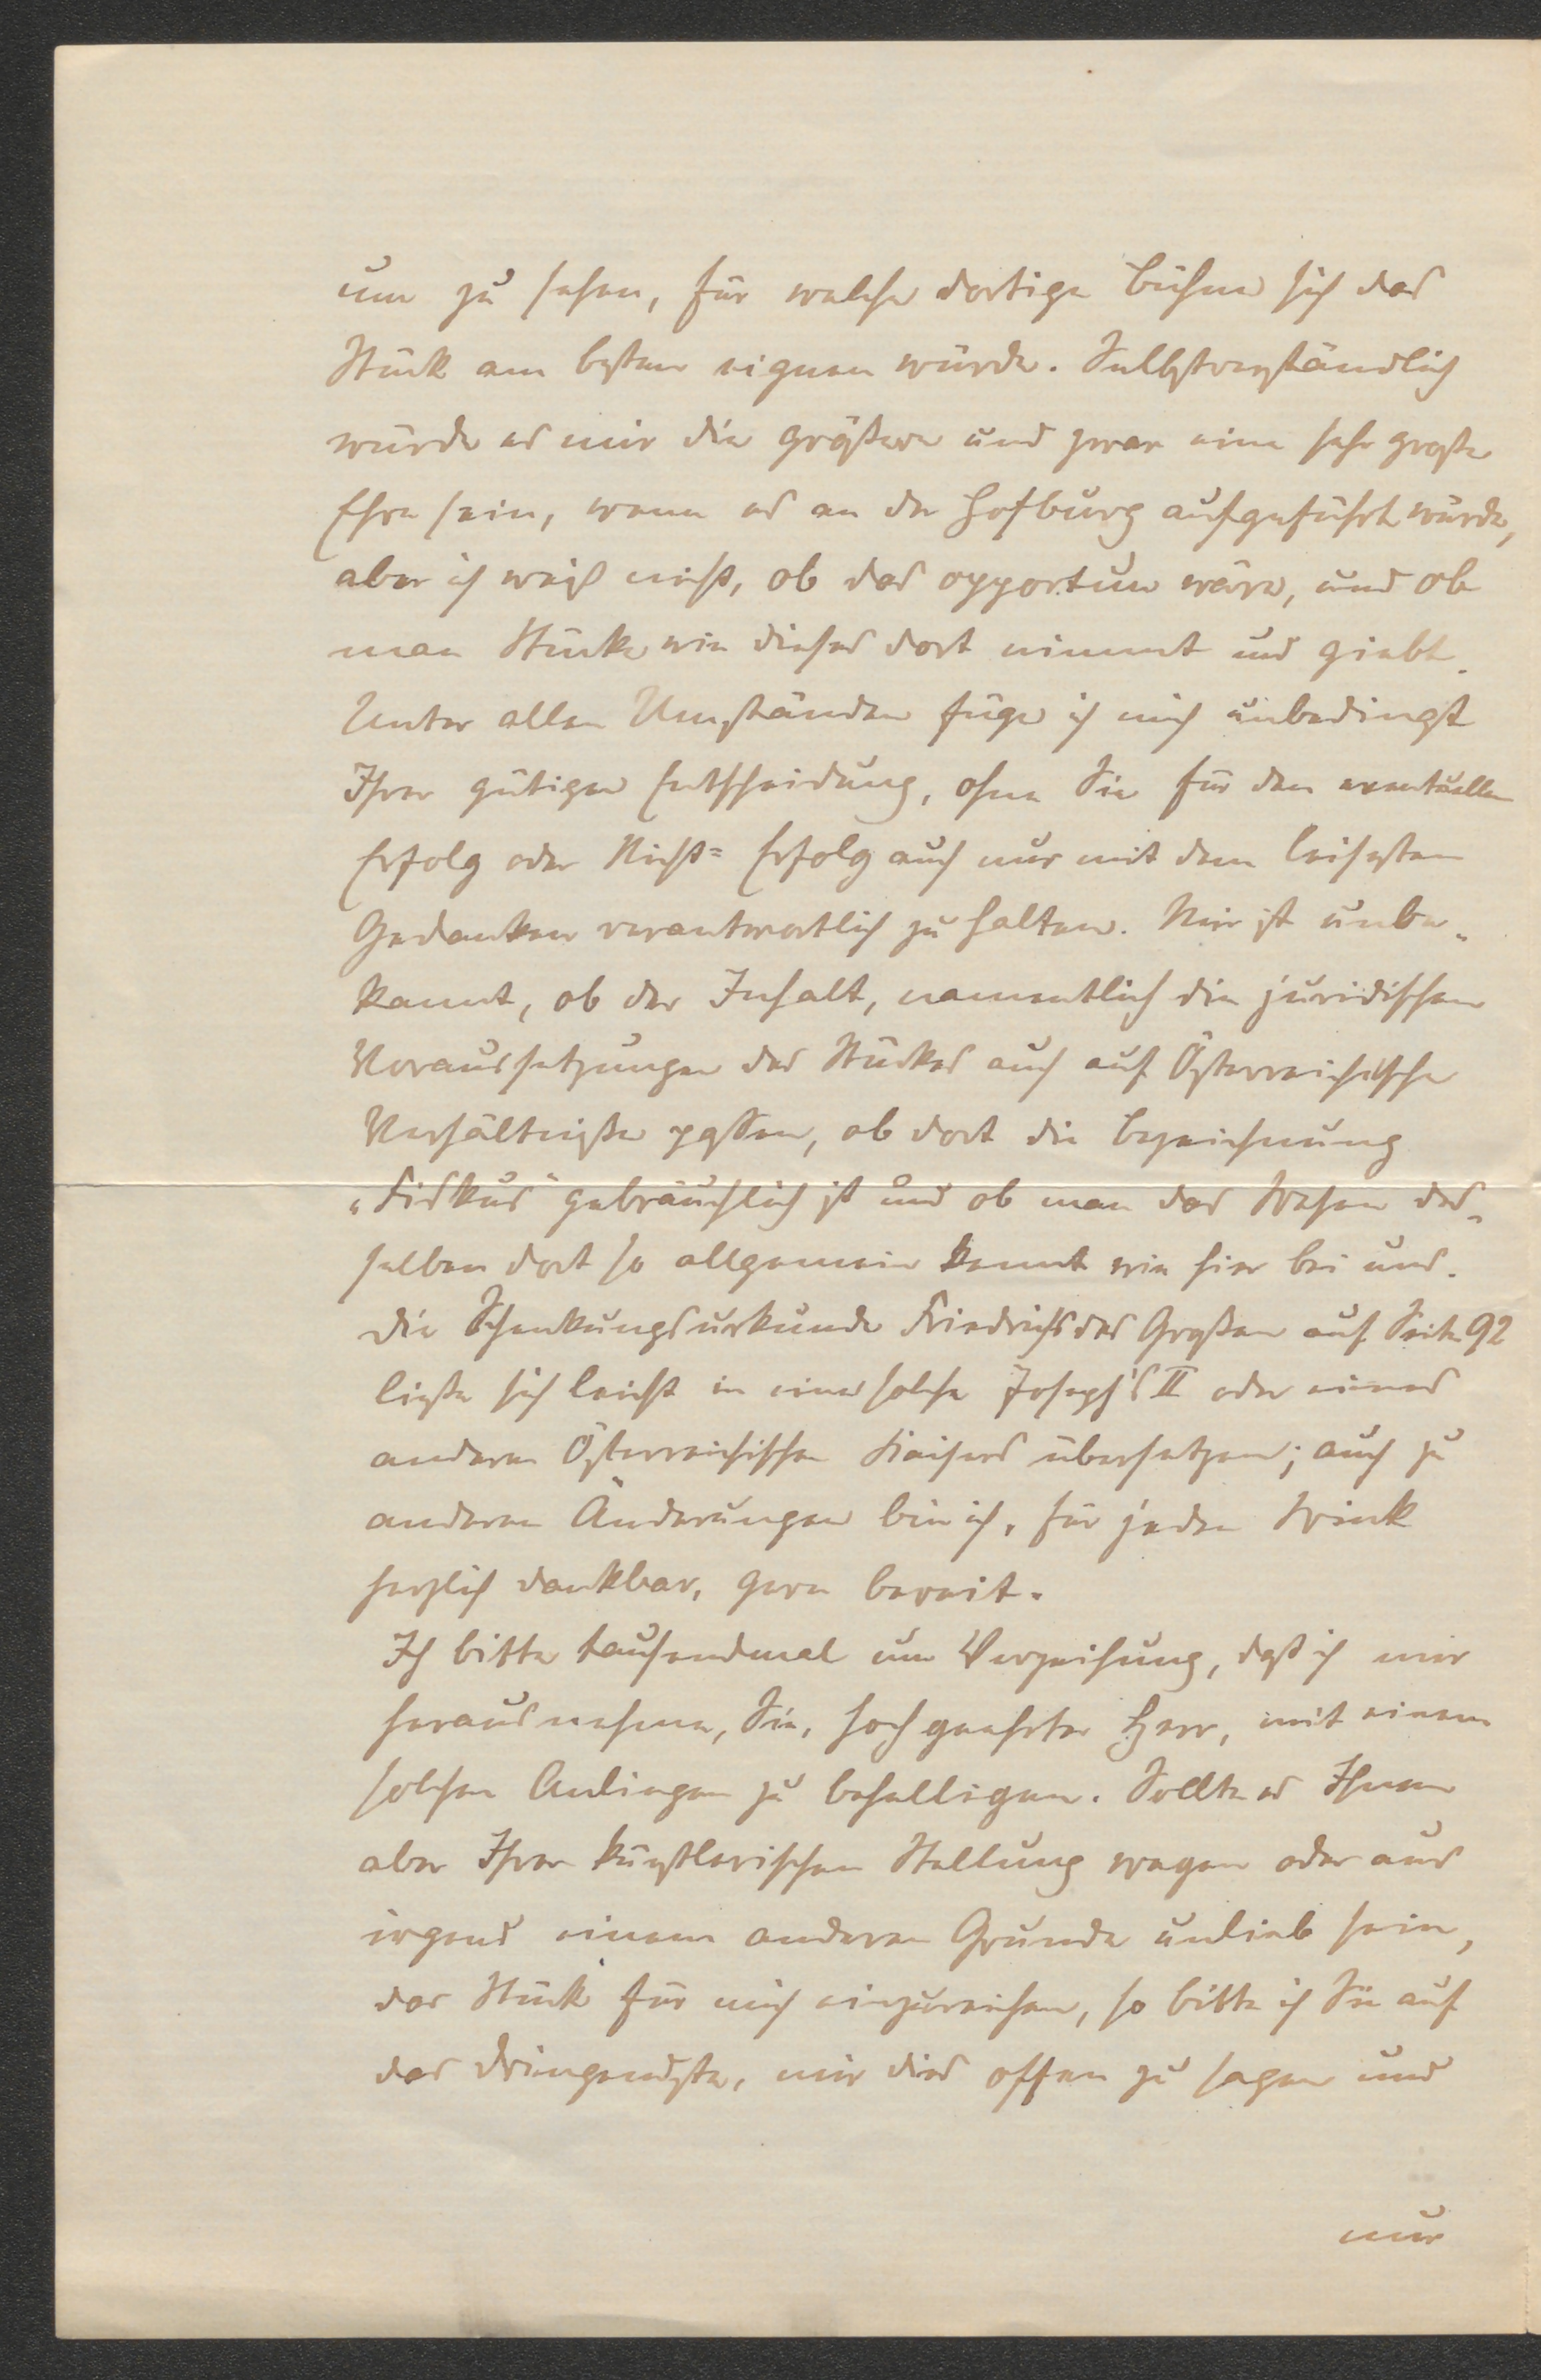 um zu sehen, für welche dortige Bühne sich das
Stück am besten eignen würde. Selbstverständlich
würde es mir die größere und zwar eine sehr große
Ehre sein, wenn es an der Hofburg aufgeführt würde,
aber ich weiß nicht, ob das opportun wäre, und ob
man Stücke wie dieses dort nimmt und giebt.
Unter allen Umständen füge ich mich unbedingt
Ihrer gütigen Entscheidung, ohne Sie für den eventuellen
Erfolg oder Nicht= Erfolg auch nur mit dem leisesten
Gedanken verantwortlich zu halten. Mir ist unbe-
kannt, ob der Inhalt, namentlich die juridischen
Voraussetzungen des Stückes auch auf Österreichische
Verhältniße passen, ob dort die Bezeichnung
„Fiskus“ gebräuchlich ist und ob man das Wesen des-
selben dort so allgemein kennt wie hier bei uns.
Die Schenkungsurkunde Friedrichs des Großen auf Seite 92
ließe sich leicht in eine solche Joseph's II oder eines
anderen Österreichischen Kaisers übersetzen; auch zu
anderen Änderungen bin ich, für jeden Wink
herzlich dankbar, gern bereit.
Ich bitte tausendmal um Verzeihung, daß ich mir
herausnehme, Sie, hochgeehrter Herr, mit einem
solchen Anliegen zu behelligen. Sollte es Ihnen
aber Ihrer künstlerischen Stellung wegen oder aus
irgend einem anderen Grunde unlieb sein,
das Stück für mich einzureichen, so bitte ich Sie auf
das Dringendste, mir dies offen zu sagen und
nur